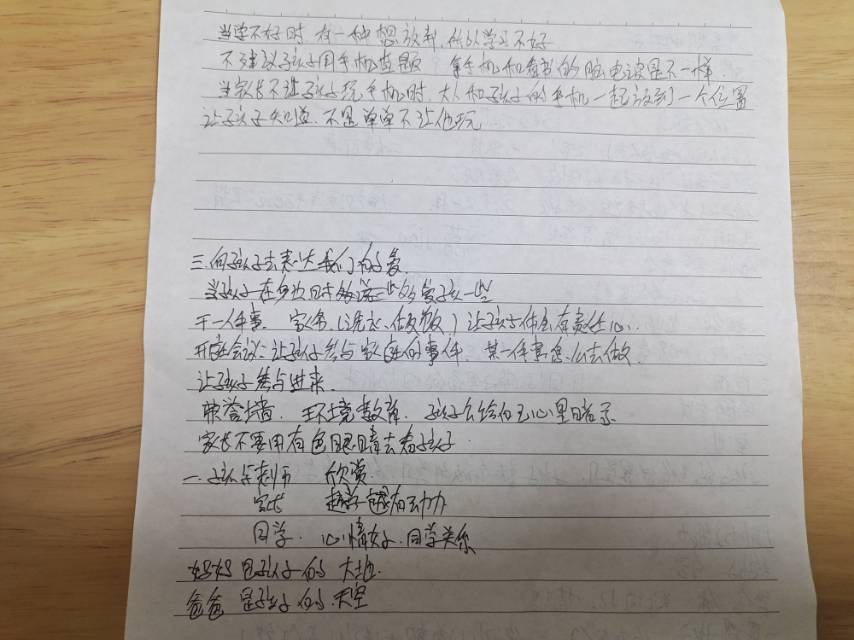 当学不好时 有一种想放弃,所以学习不好
不建议孩子用手机查题 拿手机和看书的脑电波是不一样.
当家长不让孩子玩手机时 大人和孩子的手机一起放到一个位置
让孩子知道,不是单单不让他玩
三.向孩子去表达我们的爱.
当孩子在身边时 孩子一些
干一件事. 家务.(洗衣、做饭)让孩子体会有责任心.
开家庭会议:让孩子参与家庭的事件. 某一件事怎么去做
让孩子参与进来.
荣誉墙. 环境教育. 孩子会给自己心里暗示
家长不要用有色眼睛去看孩子.
一.孩子与老师 欣赏.
家长 越学越有动力
同学. 心情好.同学关系
妈妈是孩子的大地.
爸爸是孩子的.天空